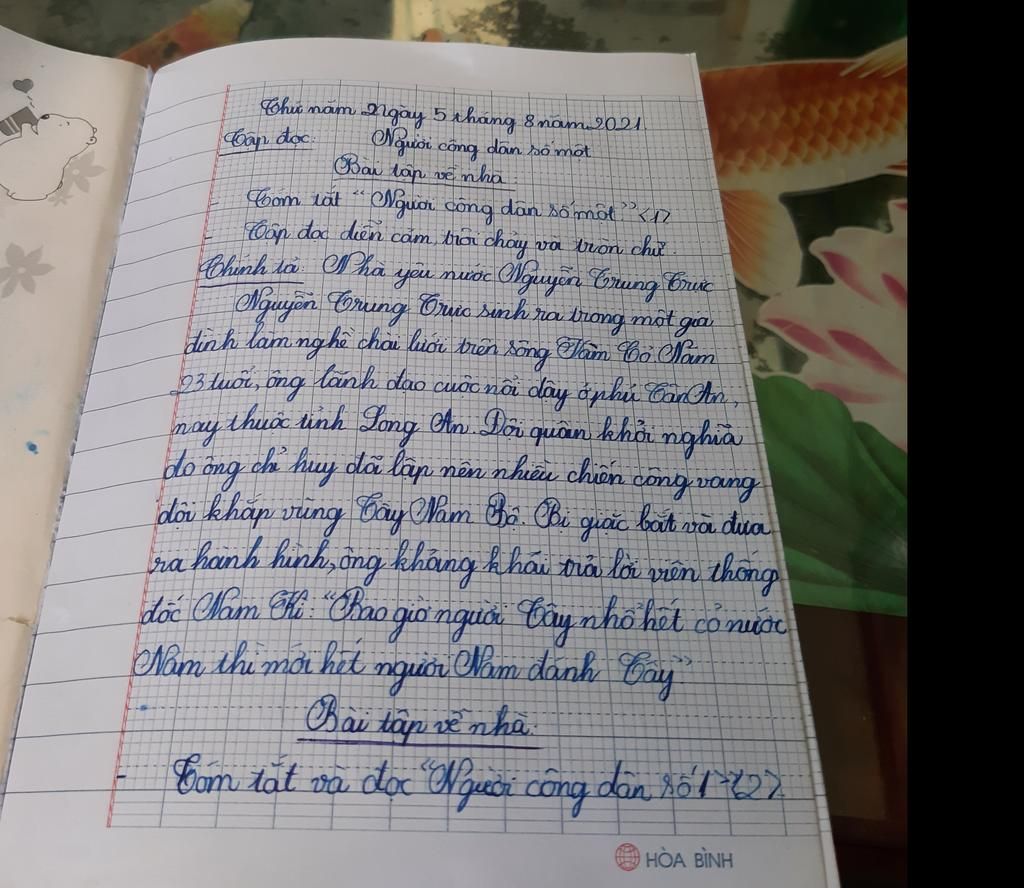 Thứ năm Ngày 5 tháng 8 năm 2021
Tập đọc: Người công dân số một
Bài tập về nhà
- Tóm tắt "Người công dân số một" <1>
- Tập đọc diễn cảm, trôi chảy và tròn chữ.
Chính tả: Nhà yêu nước Nguyễn Trung Trực
Nguyễn Trung Trực sinh ra trong một gia
đình làm nghề chài lưới trên sông Vàm Cỏ Nam
23 tuổi, ông lãnh đạo cuộc nổi dậy ở phủ Tân An,
nay thuộc tỉnh Long An. Đội quân khởi nghĩa
do ông chỉ huy đã lập nên nhiều chiến công vang
dội khắp vùng Tây Nam Bộ. Bị giặc bắt và đưa
ra hành hình, ông khảng khái trả lời viên thống
đốc Nam Kì: "Bao giờ người Tây nhổ hết cỏ nước
Nam thì mới hết người Nam đánh Tây"
Bài tập về nhà:
- Tóm tắt và đọc "Người công dân số 1" <2>
HÒA BÌNH